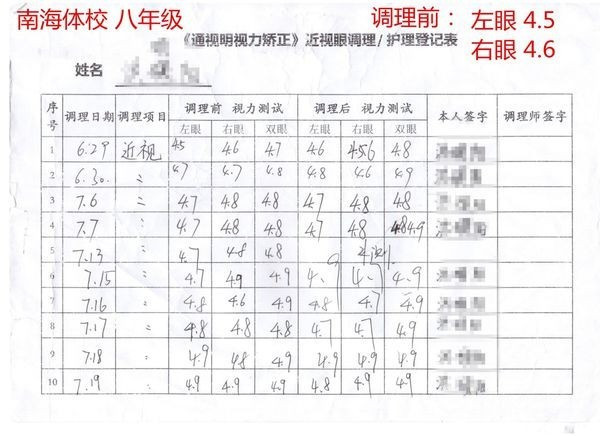 南海体校 八年级
调理前： 左眼 4.5
右眼 4.6
《通视明视力矫正》近视眼调理/护理登记表
姓名
序号 调理日期 调理项目 调理前 视力测试 调理后 视力测试 本人签字 调理师签字
左眼 右眼 双眼 左眼 右眼 双眼
1 6.29 近视 4.5 4.6 4.7 4.6 4.8
2 6.30. 〃 4.7 4.7 4.8 4.8 4.6 4.9
3 7.6 〃 4.7 4.8 4.8 4.7 4.8 4.8
4 7.7 〃 4.7 4.8 4.8 4.7 4.8 4.9
5 7.13 〃 4.7 4.8 4.8
6 7.15 〃 4.7 4.9 4.9 4.9
7 7.16 〃 4.8 4.6 4.9 4.8 4.7 4.9
8 7.17 〃 4.8 4.8 4.8 4.7 4.7 4.9
9 7.18 〃 4.9 4.8 4.9 4.9 4.9 4.9
10 7.19 〃 4.9 4.9 4.9 4.8 4.9 4.9